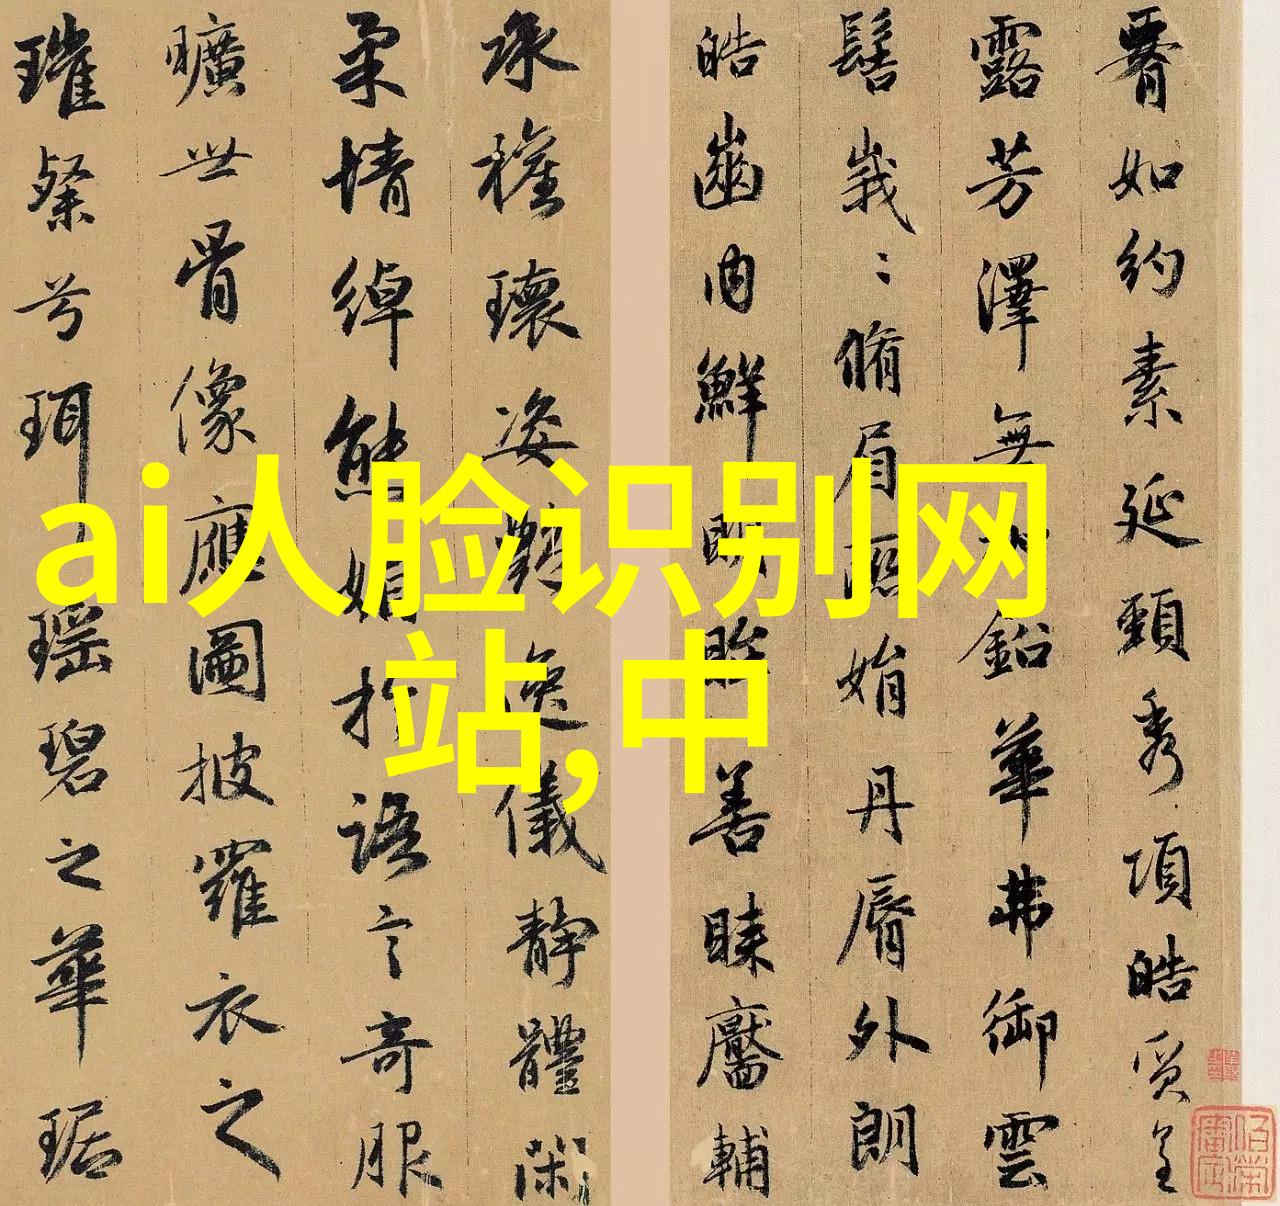 ai人脸识别网
站,中
腰如約素延頸秀項皓質呈
露芳澤無加鉛華弗御雲
髻峩〻脩眉聯娟丹脣外朗
皓齒内鮮明眸善睞靨輔
承權瓌姿艷逸儀靜體閑
柔情綽態媚於語言奇服
曠世骨像應圖披羅衣之
璀粲兮珥瑶碧之華琚